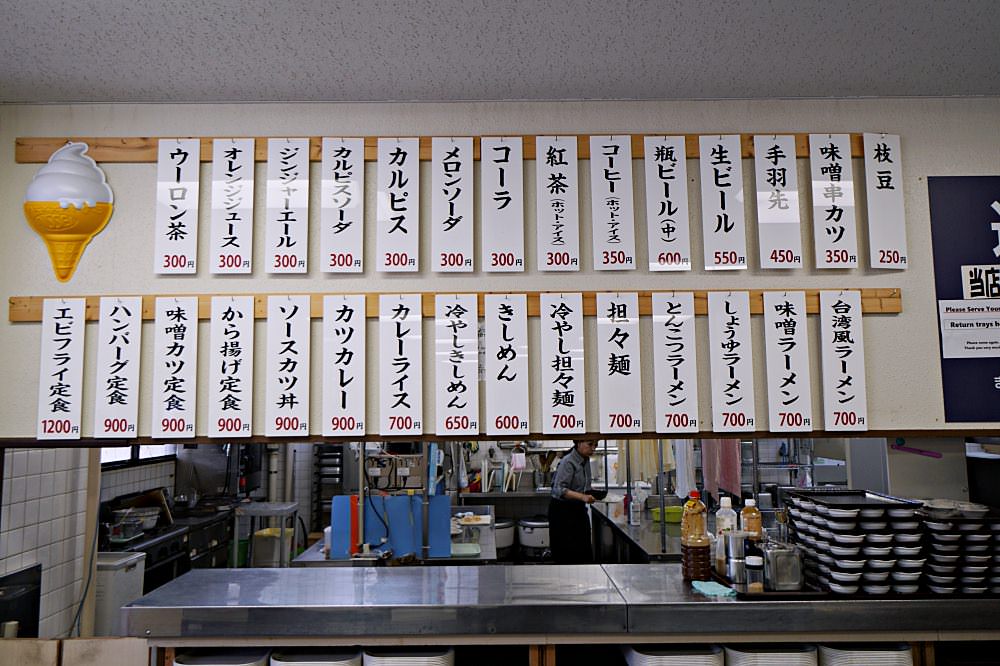 枝豆 250円
味噌串カツ 350円
手羽先 450円
生ビール 550円
瓶ビール(中) 600円
コーヒー(ホット・アイス) 350円
紅茶(ホット・アイス) 300円
コーラ 300円
メロンソーダ 300円
カルピス 300円
カルピスソーダ 300円
ジンジャーエール 300円
オレンジジュース 300円
ウーロン茶 300円
台湾風ラーメン 700円
味噌ラーメン 700円
しょうゆラーメン 700円
とんこつラーメン 700円
担々麺 700円
冷やし担々麺 700円
きしめん 600円
冷やしきしめん 650円
カレーライス 700円
カツカレー 900円
ソースカツ丼 900円
から揚げ定食 900円
味噌カツ定食 900円
ハンバーグ定食 900円
エビフライ定食 1200円
当店
Please Serve Your
Return trays